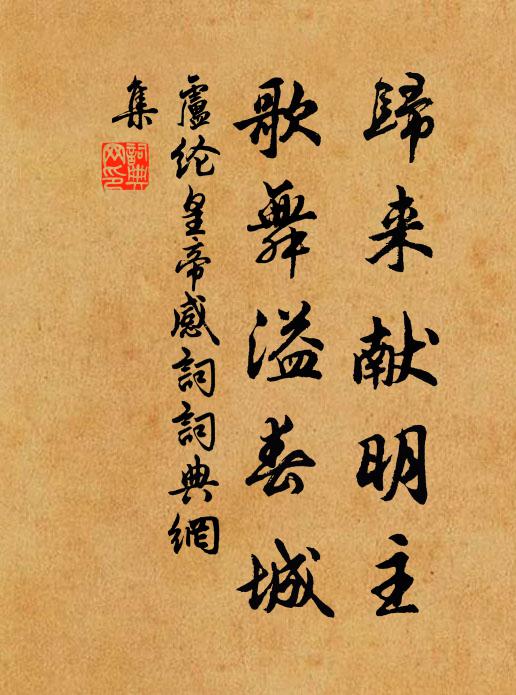 歸来献明主
歌舞溢春城
盧纶皇帝感詞詞典網
集
詞典
网印